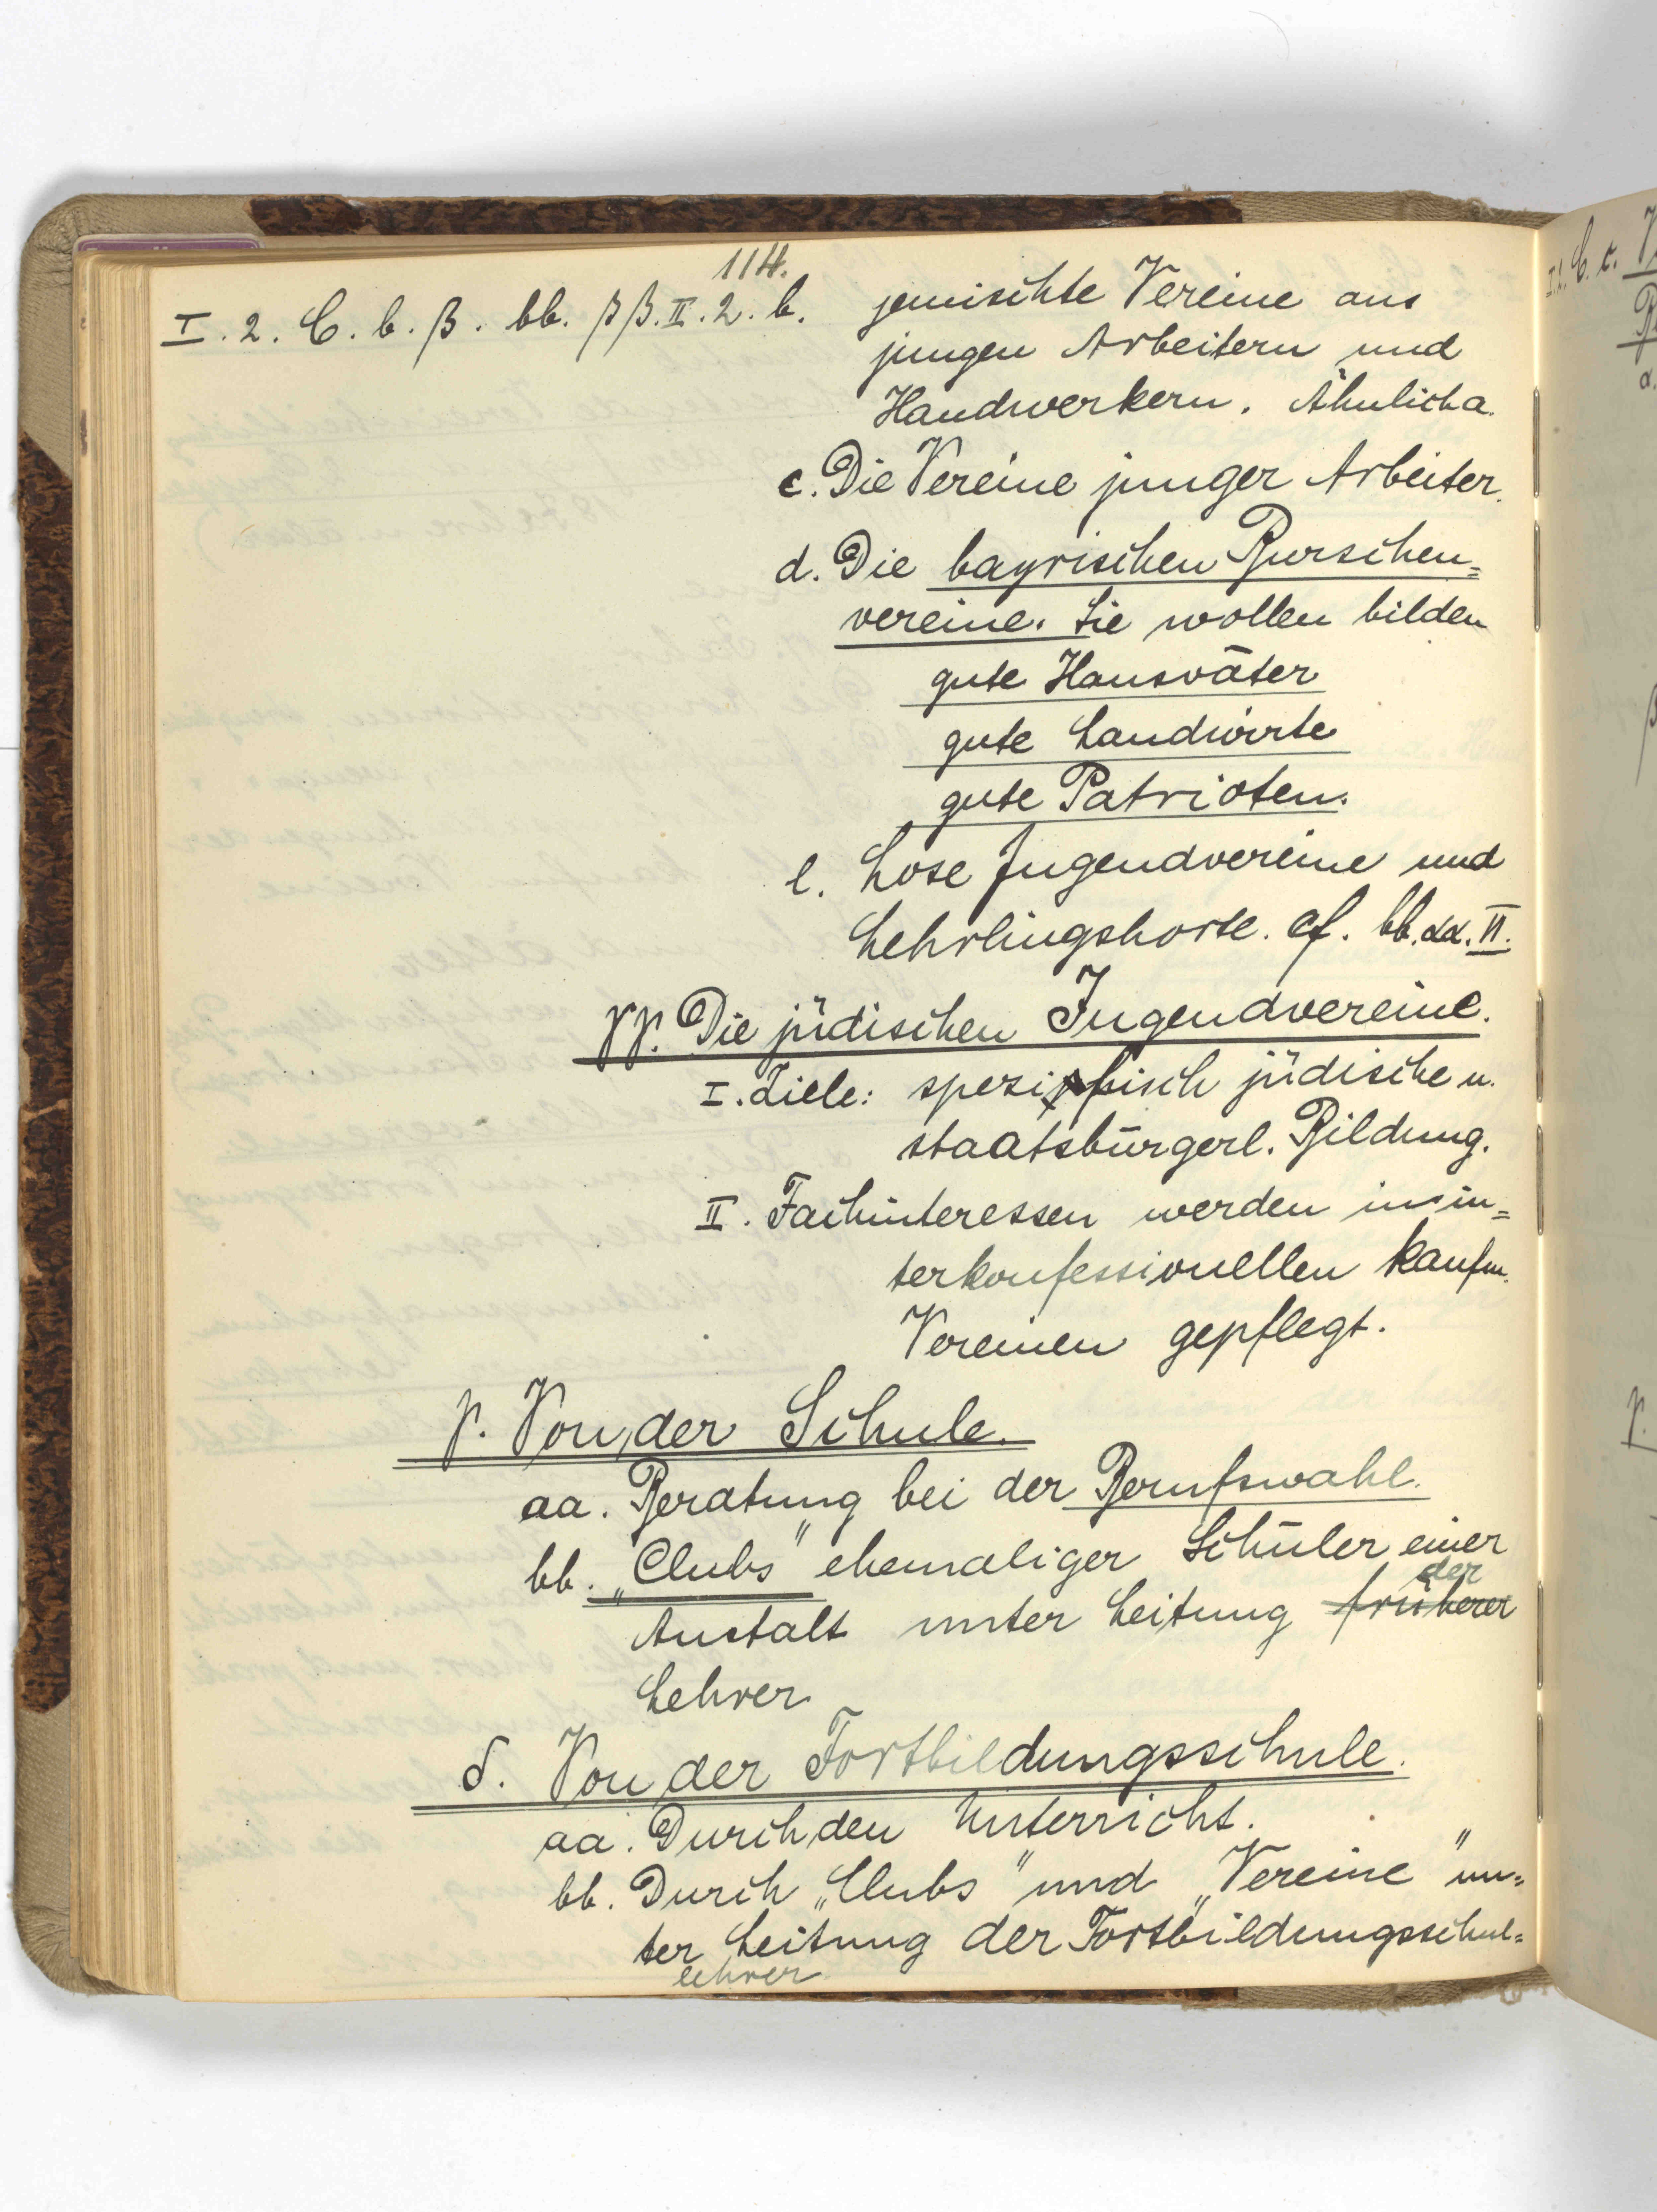 114.
I. 2. C. b. β. bb. ββ. II. 2. b. gemischte Vereine aus
jungen Arbeitern und
Handwerkern. Ähnlich a.
c. Die Vereine junger Arbeiter.
d. Die bayrischen Burschen=
vereine. Sie wollen bilden
gute Hausväter
gute Landwirte
gute Patrioten.
e. Lose Jugendvereine und
Lehrlingshorte. cf. bb. αα. II.
γγ. Die jüdischen Jugendvereine.
I. Ziele: spezifisch jüdische u.
staatsbürgerl. Bildung.
II. Fachinteressen werden in in=
terkonfessionellen kaufm.
Vereinen gepflegt.
γ. Von der Schule.
aa. Beratung bei der Berufswahl.
bb. „Clubs" ehemaliger Schüler einer
der
Anstalt unter Leitung früherer
Lehrer
δ. Von der Fortbildungsschule.
aa. Durch den Unterricht.
bb. Durch „Clubs" und „Vereine" un=
ter Leitung der Fortbildungsschul=
lehrer